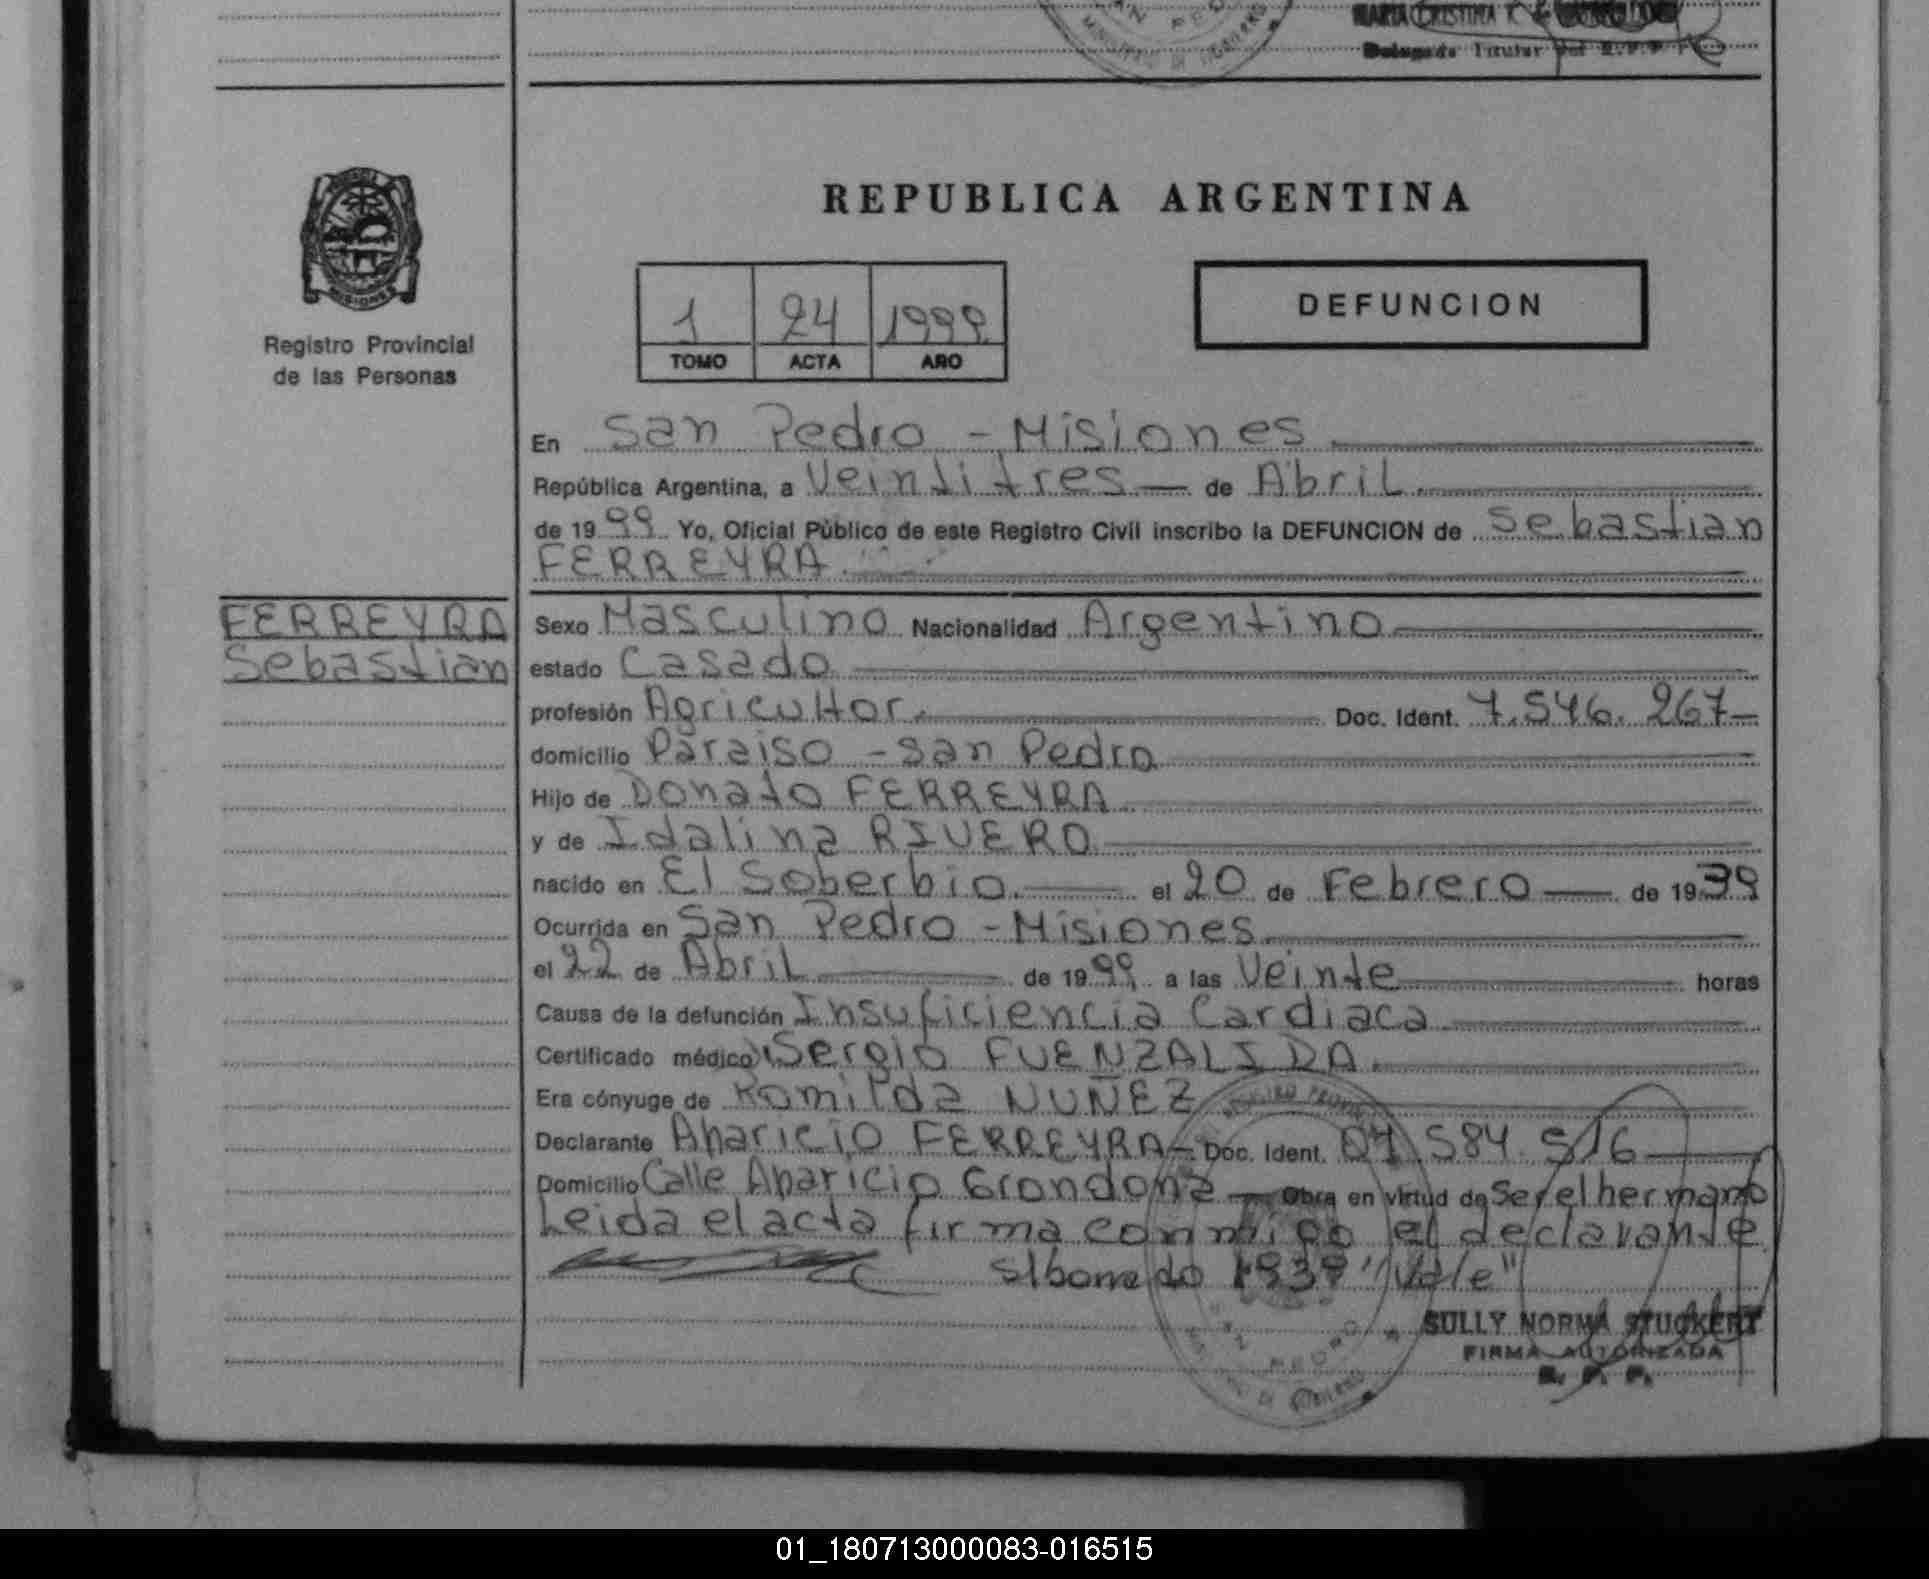 MARIA CRISTINA
Delegada Titular del R.P.P.
REPUBLICA ARGENTINA
MISIONES
Registro Provincial
de las Personas
1 24 1999
TOMO ACTA AÑO
DEFUNCION
En San Pedro - Misiones
República Argentina, a Veintitres de Abril
de 1999 Yo, Oficial Público de este Registro Civil inscribo la DEFUNCION de Sebastian
FERREYRA
FERREYRA
Sebastian
Sexo Masculino Nacionalidad Argentino
estado Casado
profesión Agricultor Doc. Ident. 7.546.267-
domicilio Paraiso - San Pedro
Hijo de Donato FERREYRA
y de Idalina RIVERO
nacido en El Soberbio el 20 de Febrero de 1939
Ocurrida en San Pedro - Misiones
el 22 de Abril de 1999 a las Veinte horas
Causa de la defunción Insuficiencia Cardiaca
Certificado médico Sergio FUENZALIDA
Era cónyuge de Romilda NUÑEZ
Declarante Aparicio FERREYRA- Doc. Ident. 07.584.516
Domicilio Calle Aparicio Grondona Obra en virtud de Ser el hermano
Leida el acta firma conmigo el declarante
S/borrado 1939 "Vale"
SAN PEDRO
SULLY NORMA STUCKERT
FIRMA AUTORIZADA
R. P. P.
01_180713000083-016515